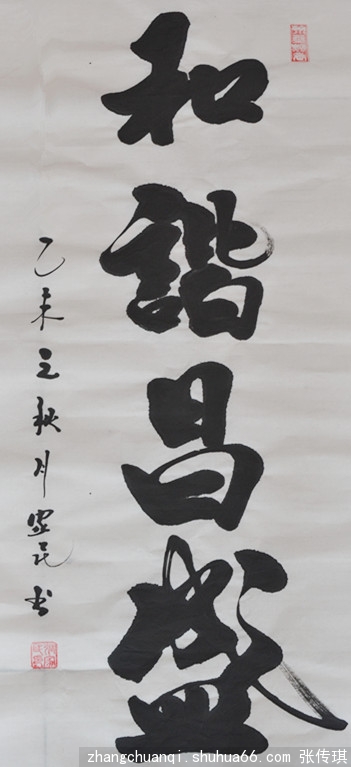 和諧昌盛
乙未之秋月 書
zhangchuanqi.shuhua66.com 张传琪